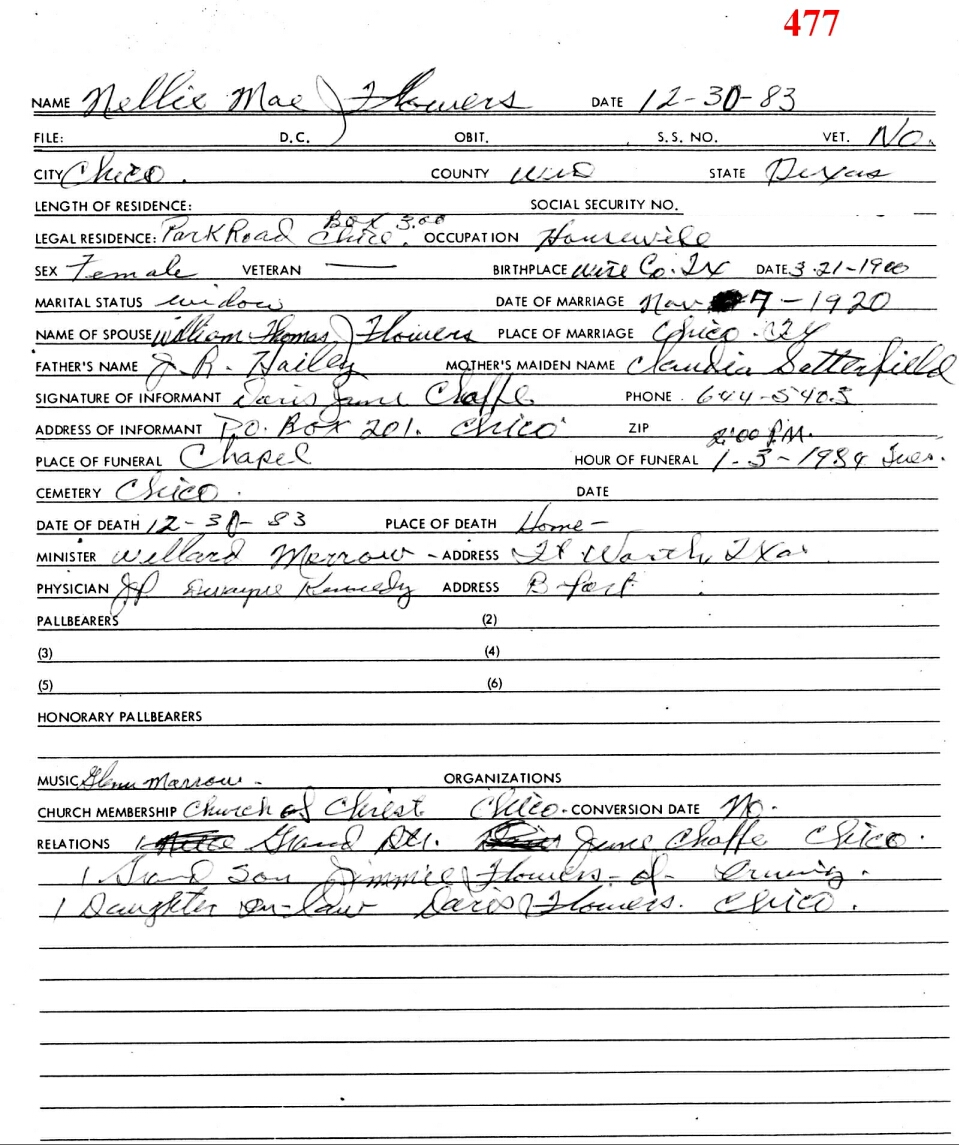 477
NAME Nellie Mae Flowers DATE 12-30-83
FILE: D.C. OBIT. S.S. NO. VET. No.
CITY Chico. COUNTY Wise STATE Texas
LENGTH OF RESIDENCE: SOCIAL SECURITY NO.
Box 300
LEGAL RESIDENCE: Park Road Chico. OCCUPATION Housewife
SEX Female VETERAN — BIRTHPLACE Wise Co. Tx DATE 3-21-1900
MARITAL STATUS widow DATE OF MARRIAGE Nov 7-1920
NAME OF SPOUSE William Thomas Flowers PLACE OF MARRIAGE Chico
FATHER'S NAME J. R. Hailey MOTHER'S MAIDEN NAME Claudia Satterfield
SIGNATURE OF INFORMANT Daris June Chaffe PHONE 644-5403
ADDRESS OF INFORMANT P.O. Box 201. Chico ZIP
2:00 P.M.
PLACE OF FUNERAL Chapel HOUR OF FUNERAL 1-3-1984 Tues.
CEMETERY Chico. DATE
DATE OF DEATH 12-30-83 PLACE OF DEATH Home-
MINISTER Willard Morrow - ADDRESS Ft Worth, Texas
PHYSICIAN JP Dwayne Kennedy ADDRESS B-port
PALLBEARERS (2)
(3) (4)
(5) (6)
HONORARY PALLBEARERS
MUSIC Glenn Marrow - ORGANIZATIONS
CHURCH MEMBERSHIP Church of Christ Chico. CONVERSION DATE No.
RELATIONS 1 Grand Dtr. June Chaffe Chico.
1 Grand Son Jimmie Flowers - of Irving.
1 Daughter in-law Daris Flowers. Chico.